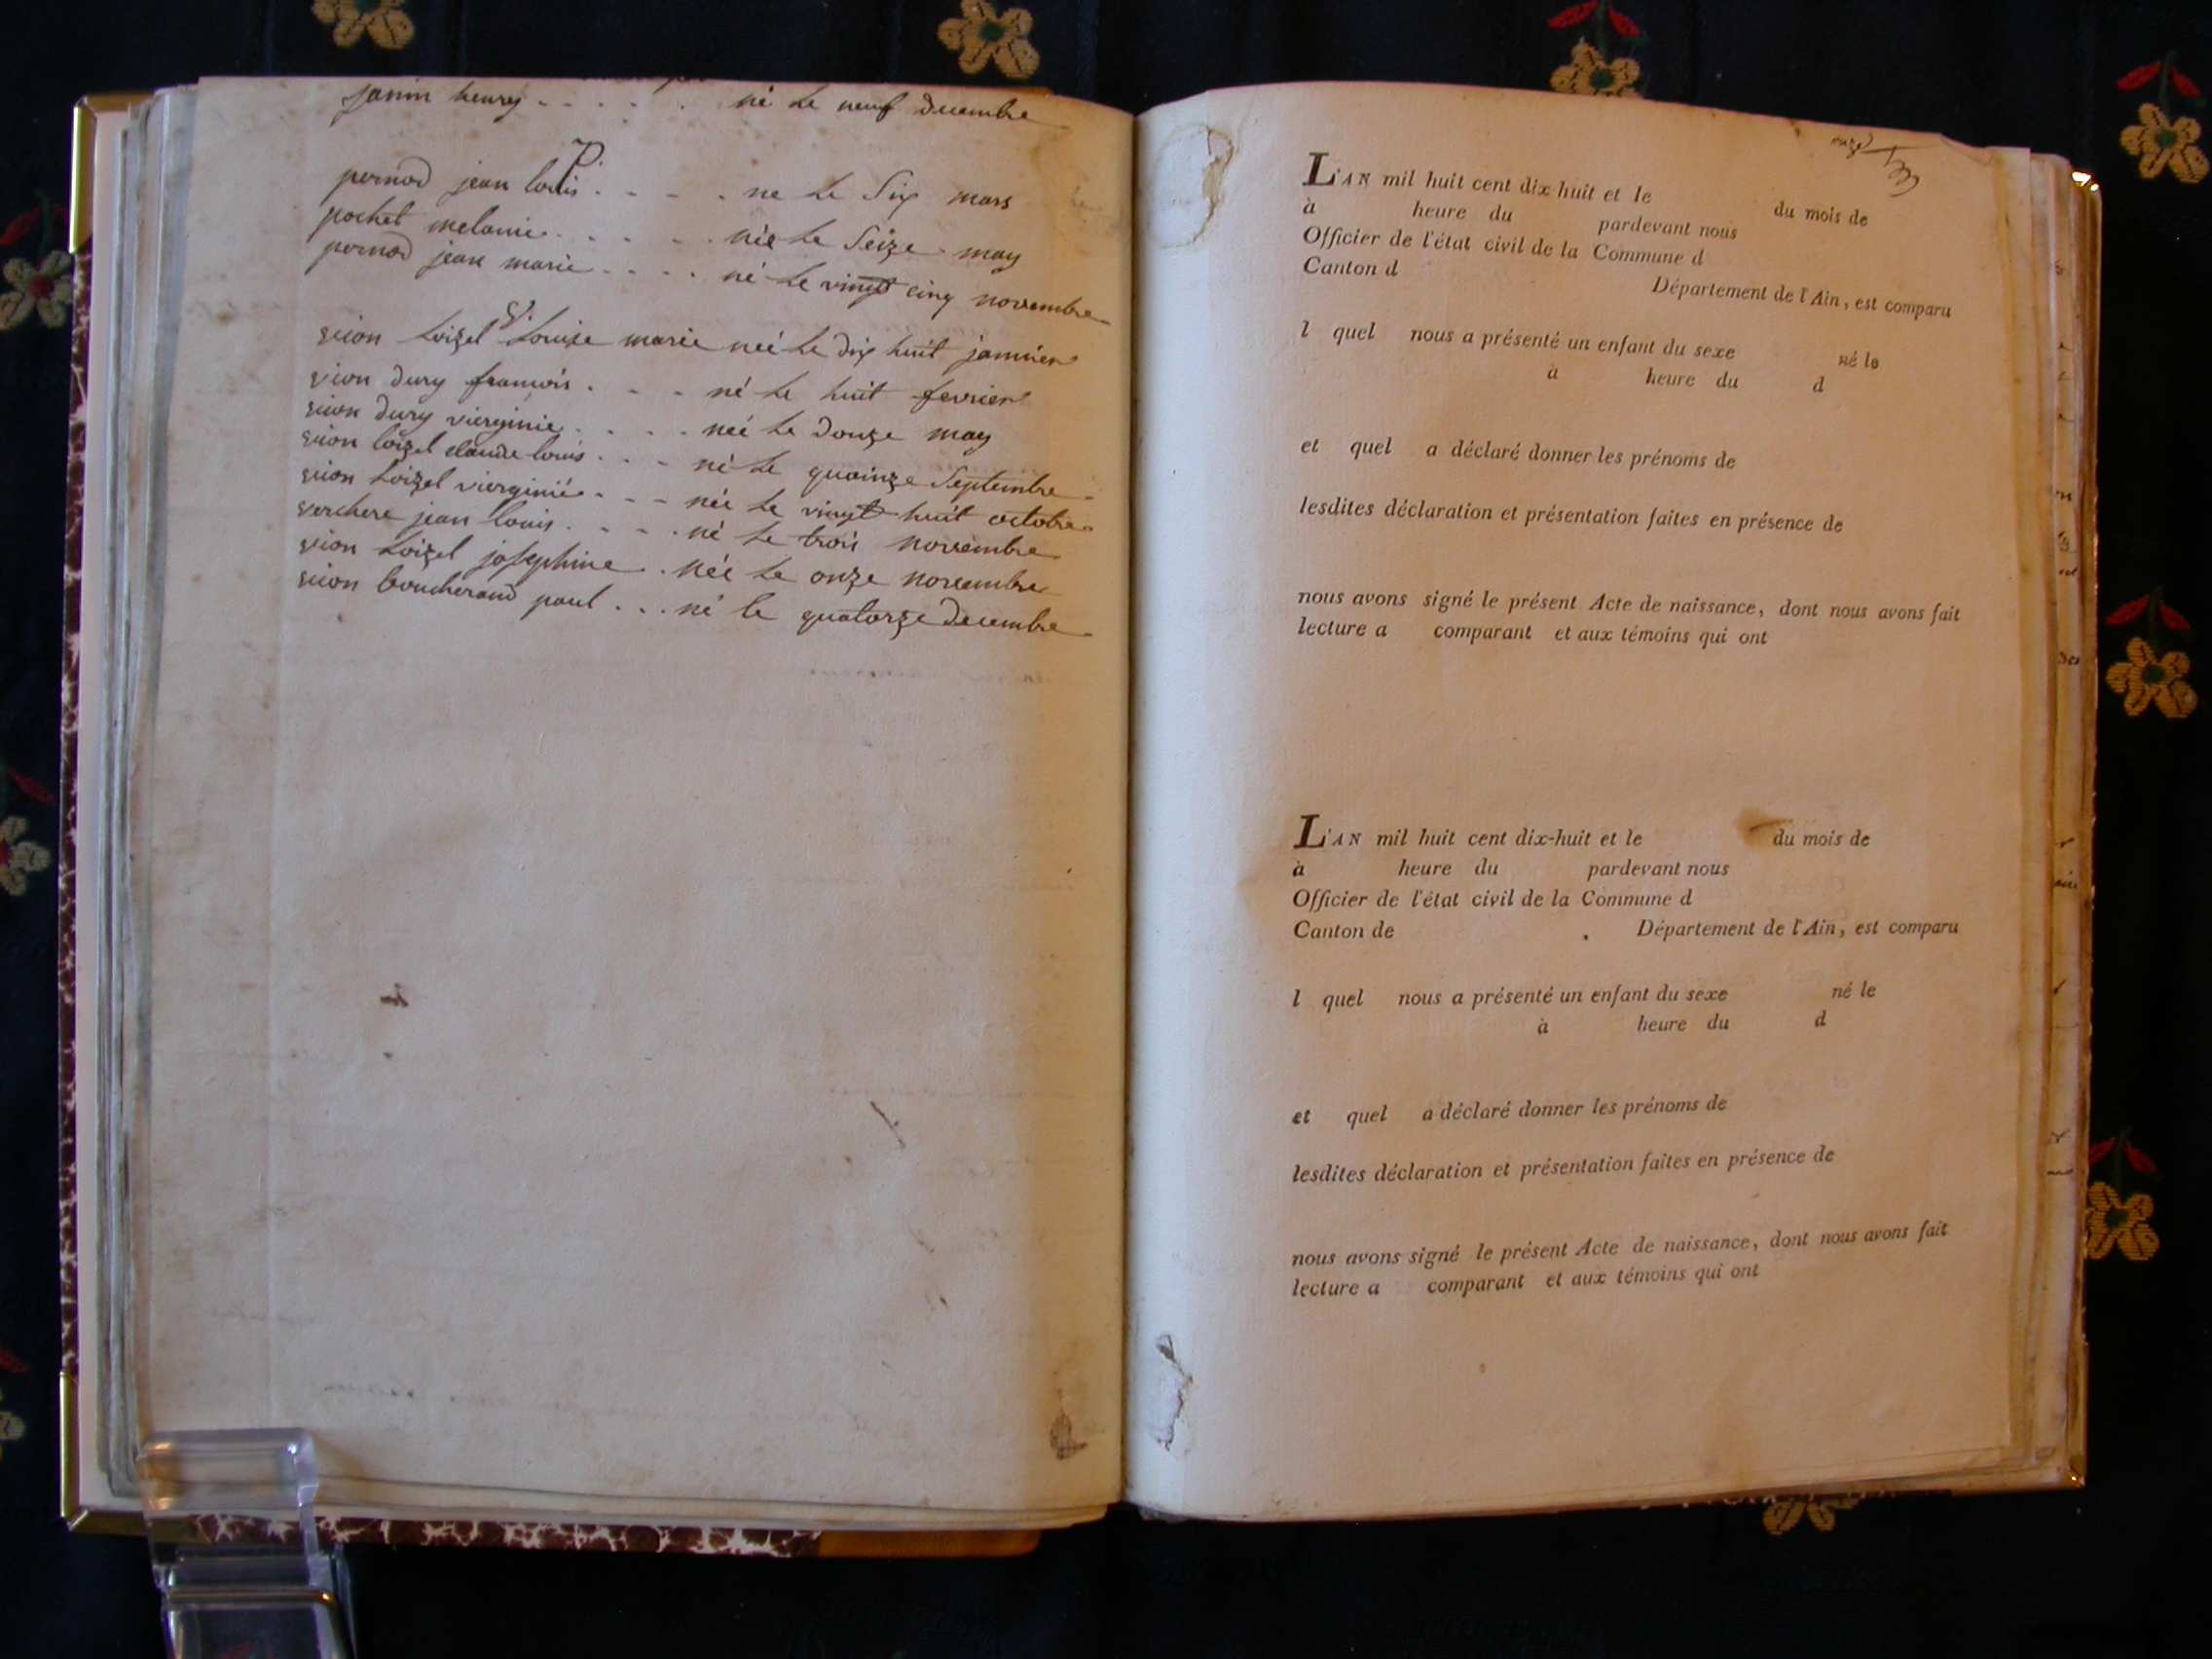 janin henry - - - - - né Le neuf decembre
P.
pernod jean louis - - - - ne Le Six mars
pochet melanie - - - - - née Le Seize may
pernod jean marie - - - - né Le vingt cinq novembre
V.
vion Loizel Louise marie neé Le dix huit janvier
vion dury francois - - - né Le huit fevrier
vion dury vierginie - - - - neé Le douze may
vion loizel claude louis - - - né Le quainze Septembre
vion Loizel vierginié - - - née Le vingt huit octobre
verchere jean louis - - - - né Le trois novembre
vion Loizel josephine . née Le onze novembre
vion boucherand paul . . . né le quatorze decembre
L'AN mil huit cent dix huit et le du mois de
à heure du pardevant nous
Officier de l'état civil de la Commune d
Canton d Département de l'Ain, est comparu
l quel nous a présenté un enfant du sexe né le
à heure du d
et quel a déclaré donner les prénoms de
lesdites déclaration et présentation faites en présence de
nous avons signé le présent Acte de naissance, dont nous avons fait
lecture a comparant et aux témoins qui ont
L'AN mil huit cent dix-huit et le du mois de
à heure du pardevant nous
Officier de l'état civil de la Commune d
Canton de Département de l'Ain, est comparu
l quel nous a présenté un enfant du sexe né le
à heure du d
et quel a déclaré donner les prénoms de
lesdites déclaration et présentation faites en présence de
nous avons signé le présent Acte de naissance, dont nous avons fait
lecture a comparant et aux témoins qui ont